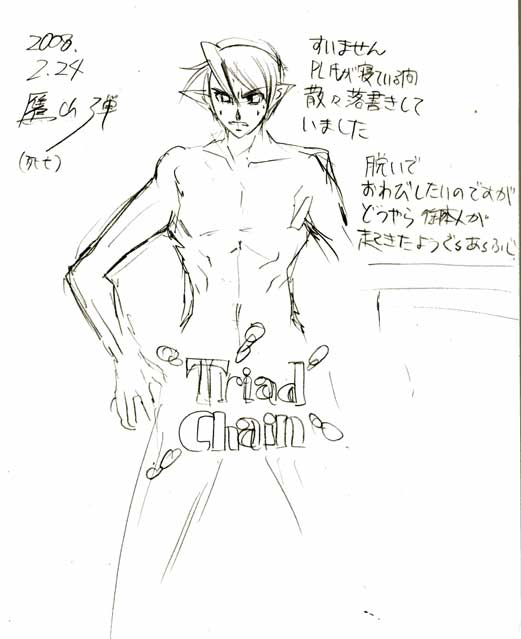 2008.
2.24
鷹ch弾
(死亡)
すいません
PL様が寝ている間
散々落書きして
いました
脱いで
おわびしたいのですが
どうやら 御本人が
起きたようでsあsふじ
Triad
Chain